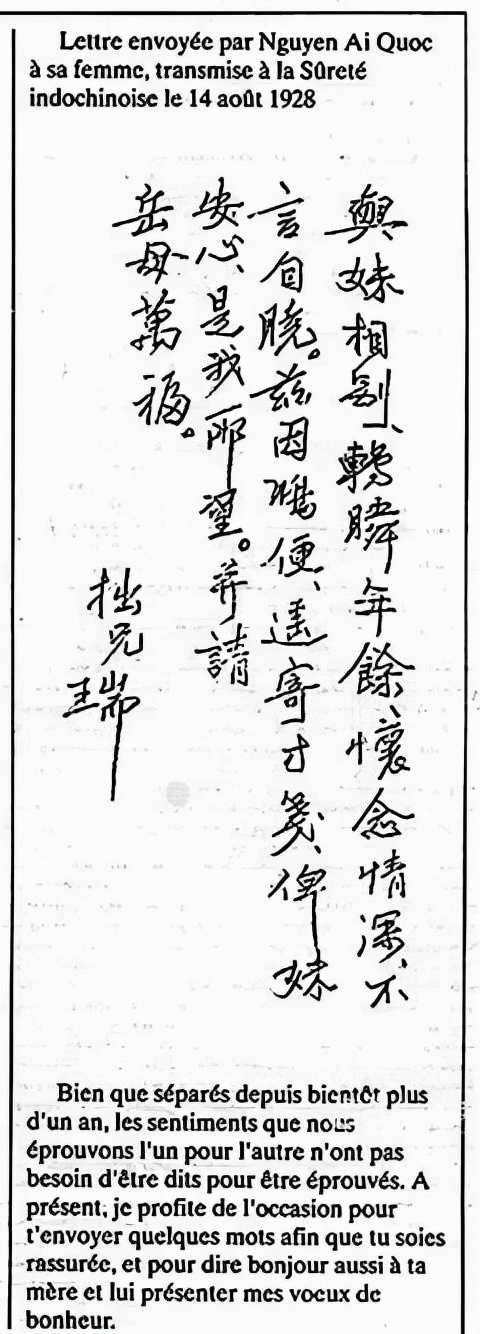 Lettre envoyée par Nguyen Ai Quoc
à sa femme, transmise à la Sûreté
indochinoise le 14 août 1928
與妹相別、轉瞬年餘、懷念情深、不
言自曉。茲因鴻便、遙寄寸箋、俾妹
安心、是我所望。并請
岳母萬福。
拙兄
瑞
Bien que séparés depuis bientôt plus
d'un an, les sentiments que nous
éprouvons l'un pour l'autre n'ont pas
besoin d'être dits pour être éprouvés. A
présent, je profite de l'occasion pour
t'envoyer quelques mots afin que tu soies
rassurée, et pour dire bonjour aussi à ta
mère et lui présenter mes voeux de
bonheur.